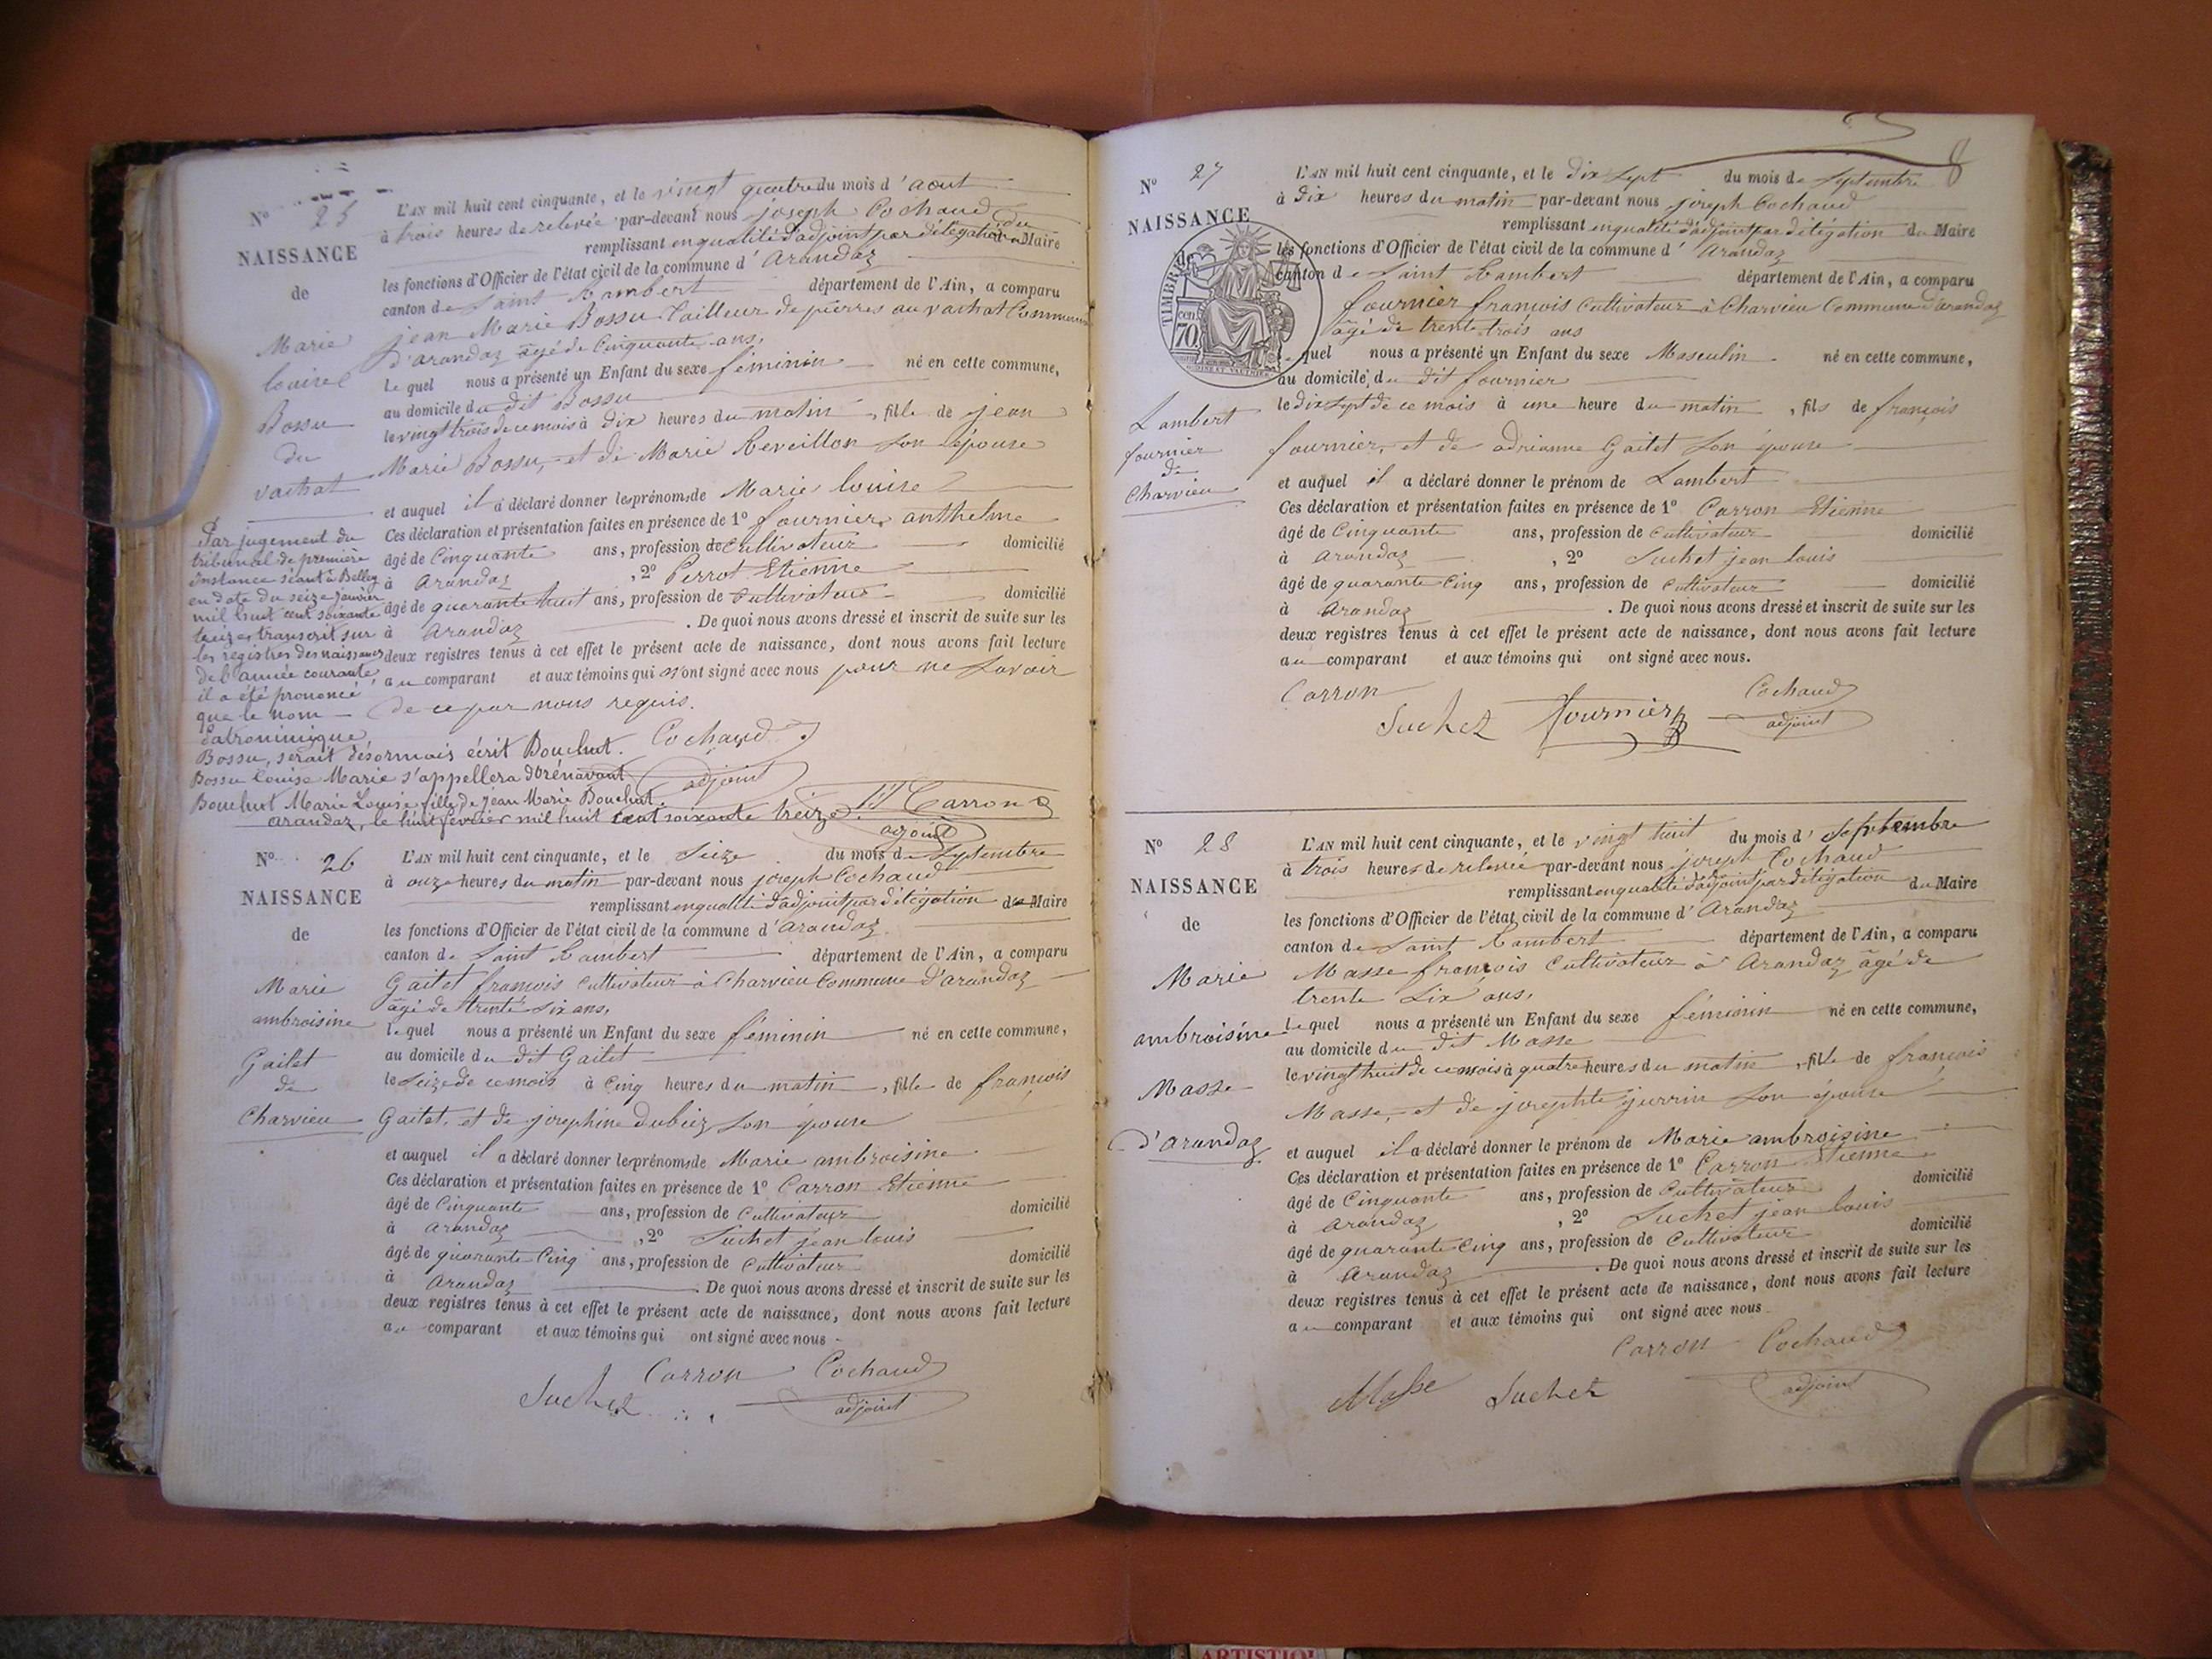 N° 25
NAISSANCE
de
Marie
louise
Bossu
du
vachat
L'AN mil huit cent cinquante, et le vingt quatre du mois d'aout
à trois heures de relevée par-devant nous joseph Cochaud
remplissant en qualité d'adjoint par délégation du Maire
les fonctions d'Officier de l'état civil de la commune d'Arandaz
canton de Saint Rambert département de l'Ain, a comparu
jean Marie Bossu tailleur de pierres au vachat Commune
d'arandaz âgé de Cinquante ans,
Le quel nous a présenté un Enfant du sexe féminin né en cette commune,
au domicile du dit Bossu
le vingt trois de ce mois à dix heures du matin, fille de jean
Marie Bossu, et de Marie Reveillon son épouse
et auquel il a déclaré donner les prénoms de Marie louise
Ces déclaration et présentation faites en présence de 1° fournier anthelme
âgé de Cinquante ans, profession de Cultivateur domicilié
à Arandaz, 2° Perrot Etienne
âgé de quarante huit ans, profession de Cultivateur domicilié
à Arandaz. De quoi nous avons dressé et inscrit de suite sur les
deux registres tenus à cet effet le présent acte de naissance, dont nous avons fait lecture
au comparant et aux témoins qui n'ont signé avec nous pour ne savoir
de ce par nous requis.
Cochaud
adjoint
Par jugement du
tribunal de première
instance séant à Belley
en date du seize janvier
mil huit cent soixante
treize, transcrit sur
les registres des naissances
de l'année courante
il a été prononcé
que le nom
patronimique
Bossu, serait désormais écrit Bouchut.
Bossu louise Marie s'appellera dorénavant
Bouchut Marie Louise fille de jean Marie Bouchut.
arandaz, le huit fevrier mil huit cent soixante treize.
Carron
adjoint
N° 26
NAISSANCE
de
Marie
ambroisine
Gaitet
de
Charvieu
L'AN mil huit cent cinquante, et le Seize du mois de Septembre
à onze heures du matin par-devant nous joseph Cochaud
remplissant en qualité d'adjoint par délégation du Maire
les fonctions d'Officier de l'état civil de la commune d'Arandaz
canton de Saint Rambert département de l'Ain, a comparu
Gaitet francois Cultivateur à Charvieu Commune d'Arandaz
âgé de trente six ans,
lequel nous a présenté un Enfant du sexe féminin né en cette commune,
au domicile du dit Gaitet
le Seize de ce mois à Cinq heures du matin, fille de françois
Gaitet, et de josephine Dubiez son épouse
et auquel il a déclaré donner les prénoms de Marie ambroisine
Ces déclaration et présentation faites en présence de 1° Carron Etienne
âgé de Cinquante ans, profession de Cultivateur domicilié
à Arandaz, 2° Suchet jean louis
âgé de quarante Cinq ans, profession de Cultivateur domicilié
à Arandaz. De quoi nous avons dressé et inscrit de suite sur les
deux registres tenus à cet effet le présent acte de naissance, dont nous avons fait lecture
au comparant et aux témoins qui ont signé avec nous
Suchet Carron Cochaud
adjoint
8
N° 27
NAISSANCE
TIMBRE
70 cen
de
Lambert
fournier
de
Charvieu
L'AN mil huit cent cinquante, et le dix Sept du mois de Septembre
à Dix heures du matin par-devant nous joseph Cochaud
remplissant en qualité d'adjoint par délégation du Maire
les fonctions d'Officier de l'état civil de la commune d'Arandaz
canton de Saint Rambert département de l'Ain, a comparu
fournier françois Cultivateur à Charvieu Commune d'arandaz
âgé de trente trois ans
le quel nous a présenté un Enfant du sexe Masculin né en cette commune,
au domicile du dit fournier
le dix Sept de ce mois à une heure du matin, fils de françois
fournier, et de adrianne Gaitet son épouse
et auquel il a déclaré donner le prénom de Lambert
Ces déclaration et présentation faites en présence de 1° Carron Etienne
âgé de Cinquante ans, profession de Cultivateur domicilié
à Arandaz, 2° Suchet jean louis
âgé de quarante Cinq ans, profession de Cultivateur domicilié
à Arandaz. De quoi nous avons dressé et inscrit de suite sur les
deux registres tenus à cet effet le présent acte de naissance, dont nous avons fait lecture
au comparant et aux témoins qui ont signé avec nous.
Carron Suchet fournier Cochaud
adjoint
N° 28
NAISSANCE
de
Marie
ambroisine
Masse
d'Arandaz
L'AN mil huit cent cinquante, et le vingt huit du mois d' Septembre
à trois heures de relevée par-devant nous joseph Cochaud
remplissant en qualité d'adjoint par délégation du Maire
les fonctions d'Officier de l'état civil de la commune d'Arandaz
canton de Saint Rambert département de l'Ain, a comparu
Masse françois Cultivateur à Arandaz âgé de
trente Six ans,
lequel nous a présenté un Enfant du sexe féminin né en cette commune,
au domicile du dit Masse
le vingt huit de ce mois à quatre heures du matin, fille de françois
Masse, et de josephte juvrin son épouse
et auquel il a déclaré donner le prénom de Marie ambroisine
Ces déclaration et présentation faites en présence de 1° Carron Etienne
âgé de Cinquante ans, profession de Cultivateur domicilié
à Arandaz, 2° Suchet jean louis
âgé de quarante Cinq ans, profession de Cultivateur domicilié
à Arandaz. De quoi nous avons dressé et inscrit de suite sur les
deux registres tenus à cet effet le présent acte de naissance, dont nous avons fait lecture
au comparant et aux témoins qui ont signé avec nous
Carron Cochaud
Masse Suchet adjoint